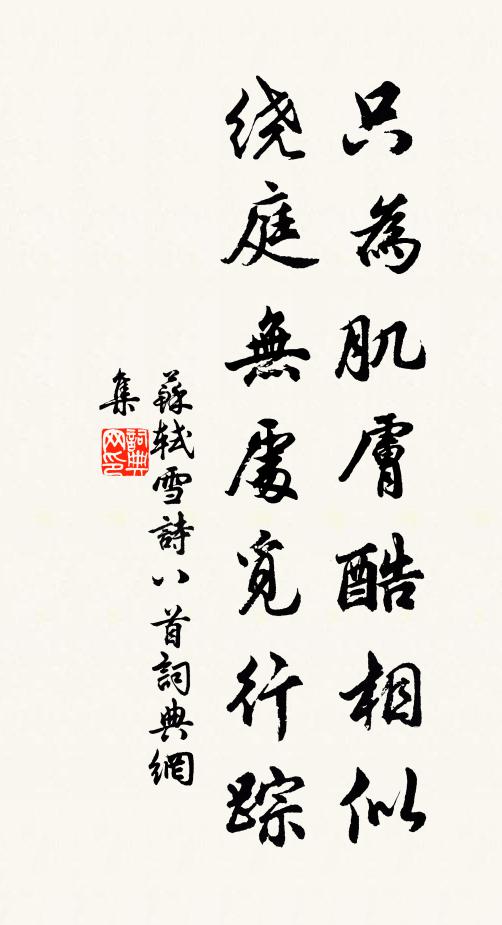 只為肌膚酷相似
绕庭無處覓行踪
蘇軾雪詩八首詞典網
集
詞典網印